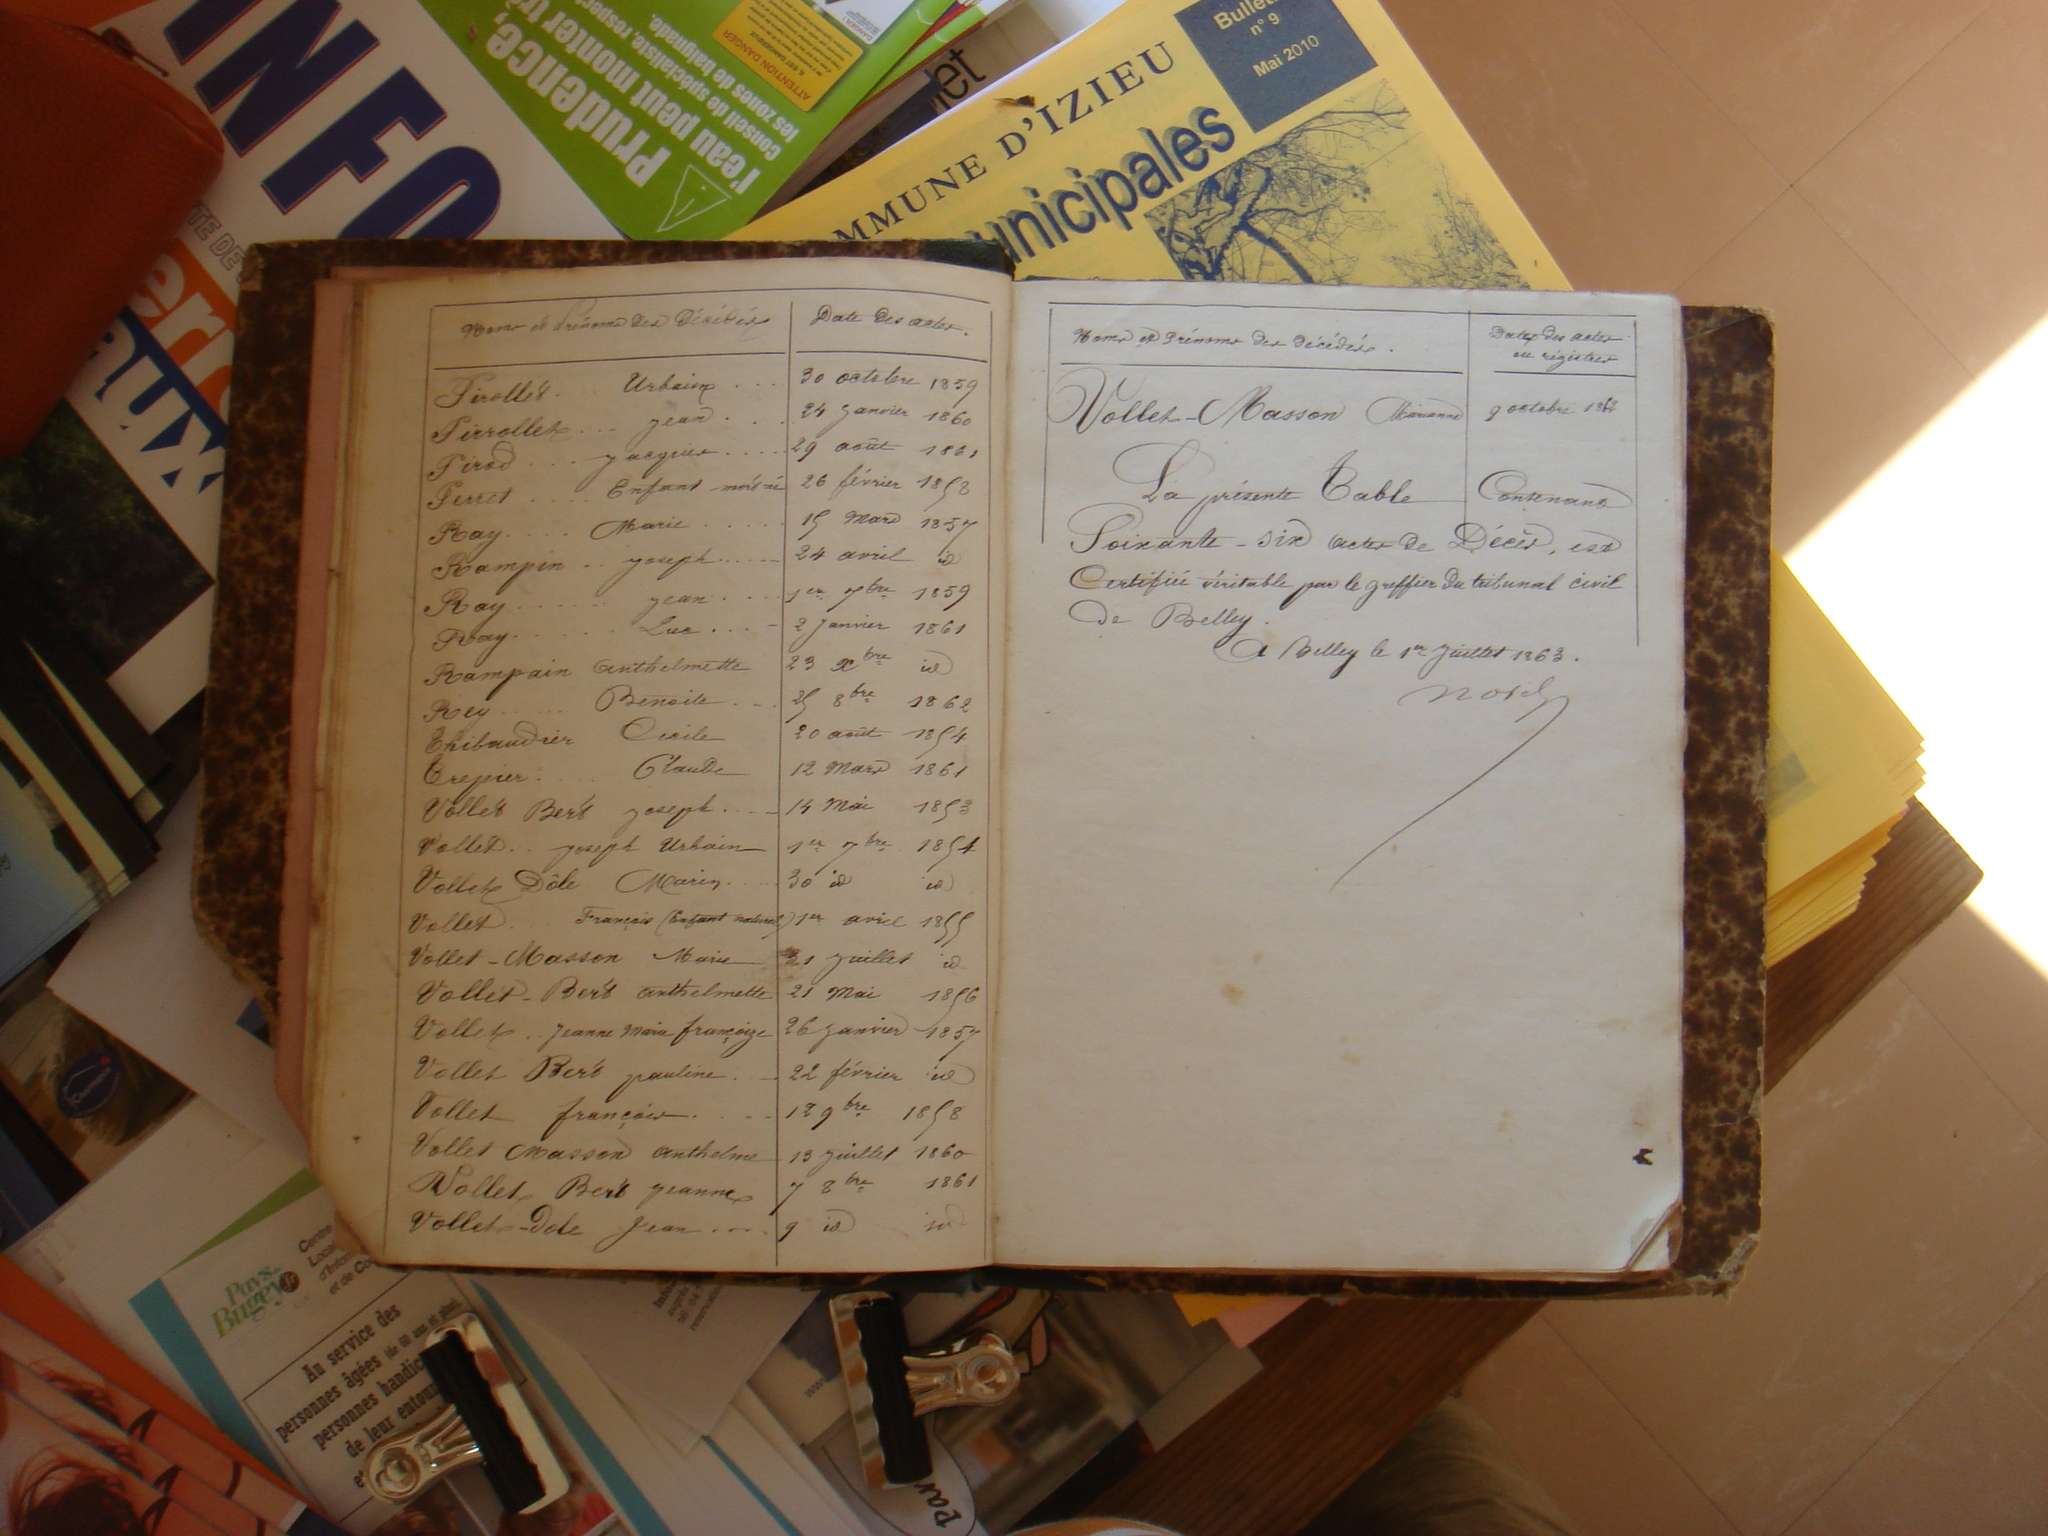 INFO
Prudence,
l'eau peut monter
conseil de spécialiste, respec
les zones de baignade.
ATTENTION DANGER
MMUNE D'IZIEU
unicipales
Bulle
n° 9
Mai 2010
Noms et Prénoms des Décédés
Date des actes.
Pirollet . . Urbain . . . 30 octobre 1859
Pirrollet . . . jean . . . 24 janvier 1860
Pirod . . . jacques . . . . 29 août 1861
Perret . . . . Enfant mort né 26 février 1858
Ray . . . . Marie . . . . . 15 Mars 1857
Rampin . . joseph . . . . . 24 avril id
Ray . . . . . . jean . . . . 1er 7bre 1859
Ray . . . . . . Luc . . . . 2 janvier 1861
Rampain anthelmette 23 xbre id
Rey . . . . . Benoite . . . 25 8bre 1862
Thibaudier Cécile 20 août 1854
Trepier . . . . Claude 12 Mars 1861
Vollet Bert joseph . . . . 14 Mai 1853
Vollet . . joseph Urbain 1er 7bre 1854
Vollet Dôle Marin . . . . 30 id id
Vollet . . . François (Enfant naturel) 1er avril 1855
Vollet - Masson Marie 21 juillet id
Vollet - Bert anthelmette 21 Mai 1856
Vollet . . jeanne Marie françoise 26 janvier 1857
Vollet Bert pauline . . . 22 février id
Vollet françois . . . . 12 9bre 1858
Vollet Masson anthelme 13 juillet 1860
Vollet Bert jeanne 7 8bre 1861
Vollet - Dole Jean . . . . 9 id id
Noms et Prénoms des Décédés.
Dates des actes
au régistres
Vollet - Masson Marianne 9 octobre 1862
La présente Table Contenant
Soixante - six actes de Décès, est
Certifiée véritable par le greffier du tribunal civil
de Belley.
A Belley le 1er juillet 1863.
Pays
Bugey
Centre
Local
d'Infor
et de Co
Au service des
personnes âgées
personnes handic
de leur entour